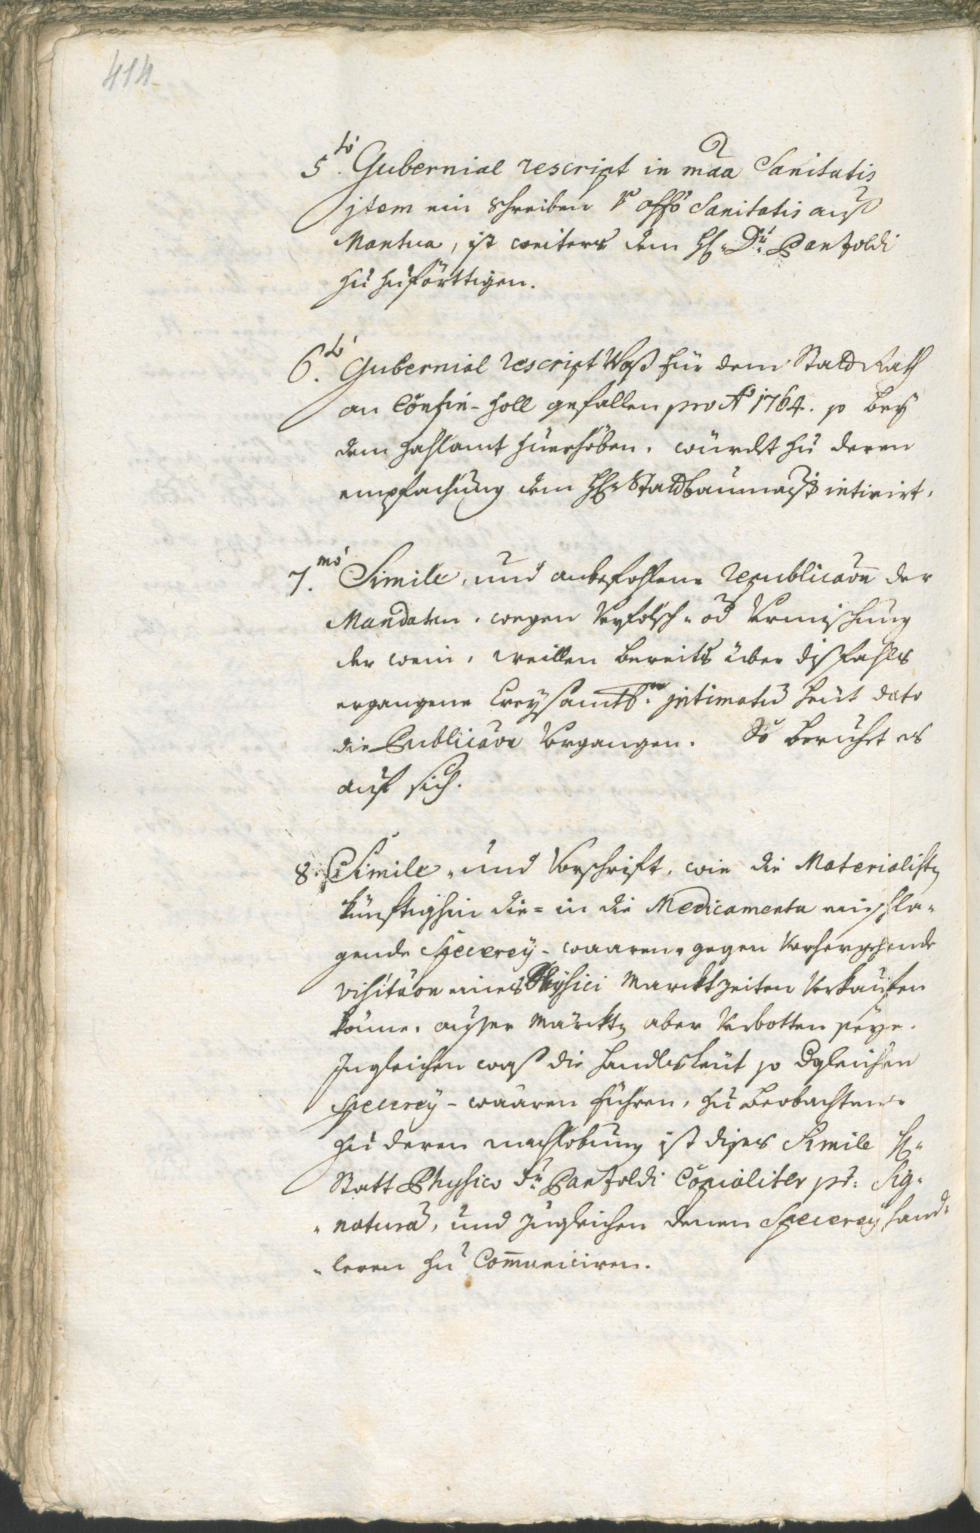 414
5.to Gubernial rescript in maa Sanitatis
jtem ein schreiben offo Sanitatis auß
Mantua, ist weiters dem H: Dr: Panzoldi
zu zuförttigen.
6.to Gubernial rescript Waß für dem Stadt Rath
an Confin-Zoll gefallen pro Ao 1764. bey
dem Zahlamt zuerhöben. würdet zu deren
empfachung dem H: Stattbaumaistr intimirt.
7.mo Simile, und anbefohlene republicaon der
Mandaten. wegen Verfölsch- od Vermischung
der wein, weillen bereits über dißfahls
ergangene Creysamtl. jntimatu heut dato
die Publicaon Vorgangen. So beruhet es
auf sich.
8. Simile, und Vorschrift, wie die Materialistn
künftighin die- in die Medicamenta einschla-
gende Specerey-waaren gegen Vorhergehende
visitaon eines Physici Marcktzeiten Verkaufen
könne, ausser Märcktn aber Verbotten seye.
Jngleichen waß die Handlesleut so dgleichen
Specerey-waaren führen, zu beobachten.
zu deren nachlebung ist dises Simile H:
Statt Physico Dr: Panzoldi Copialiter pr: Sig-
natura, und zugleichen denen Specerey hand-
leren zu Com̄uniciren.